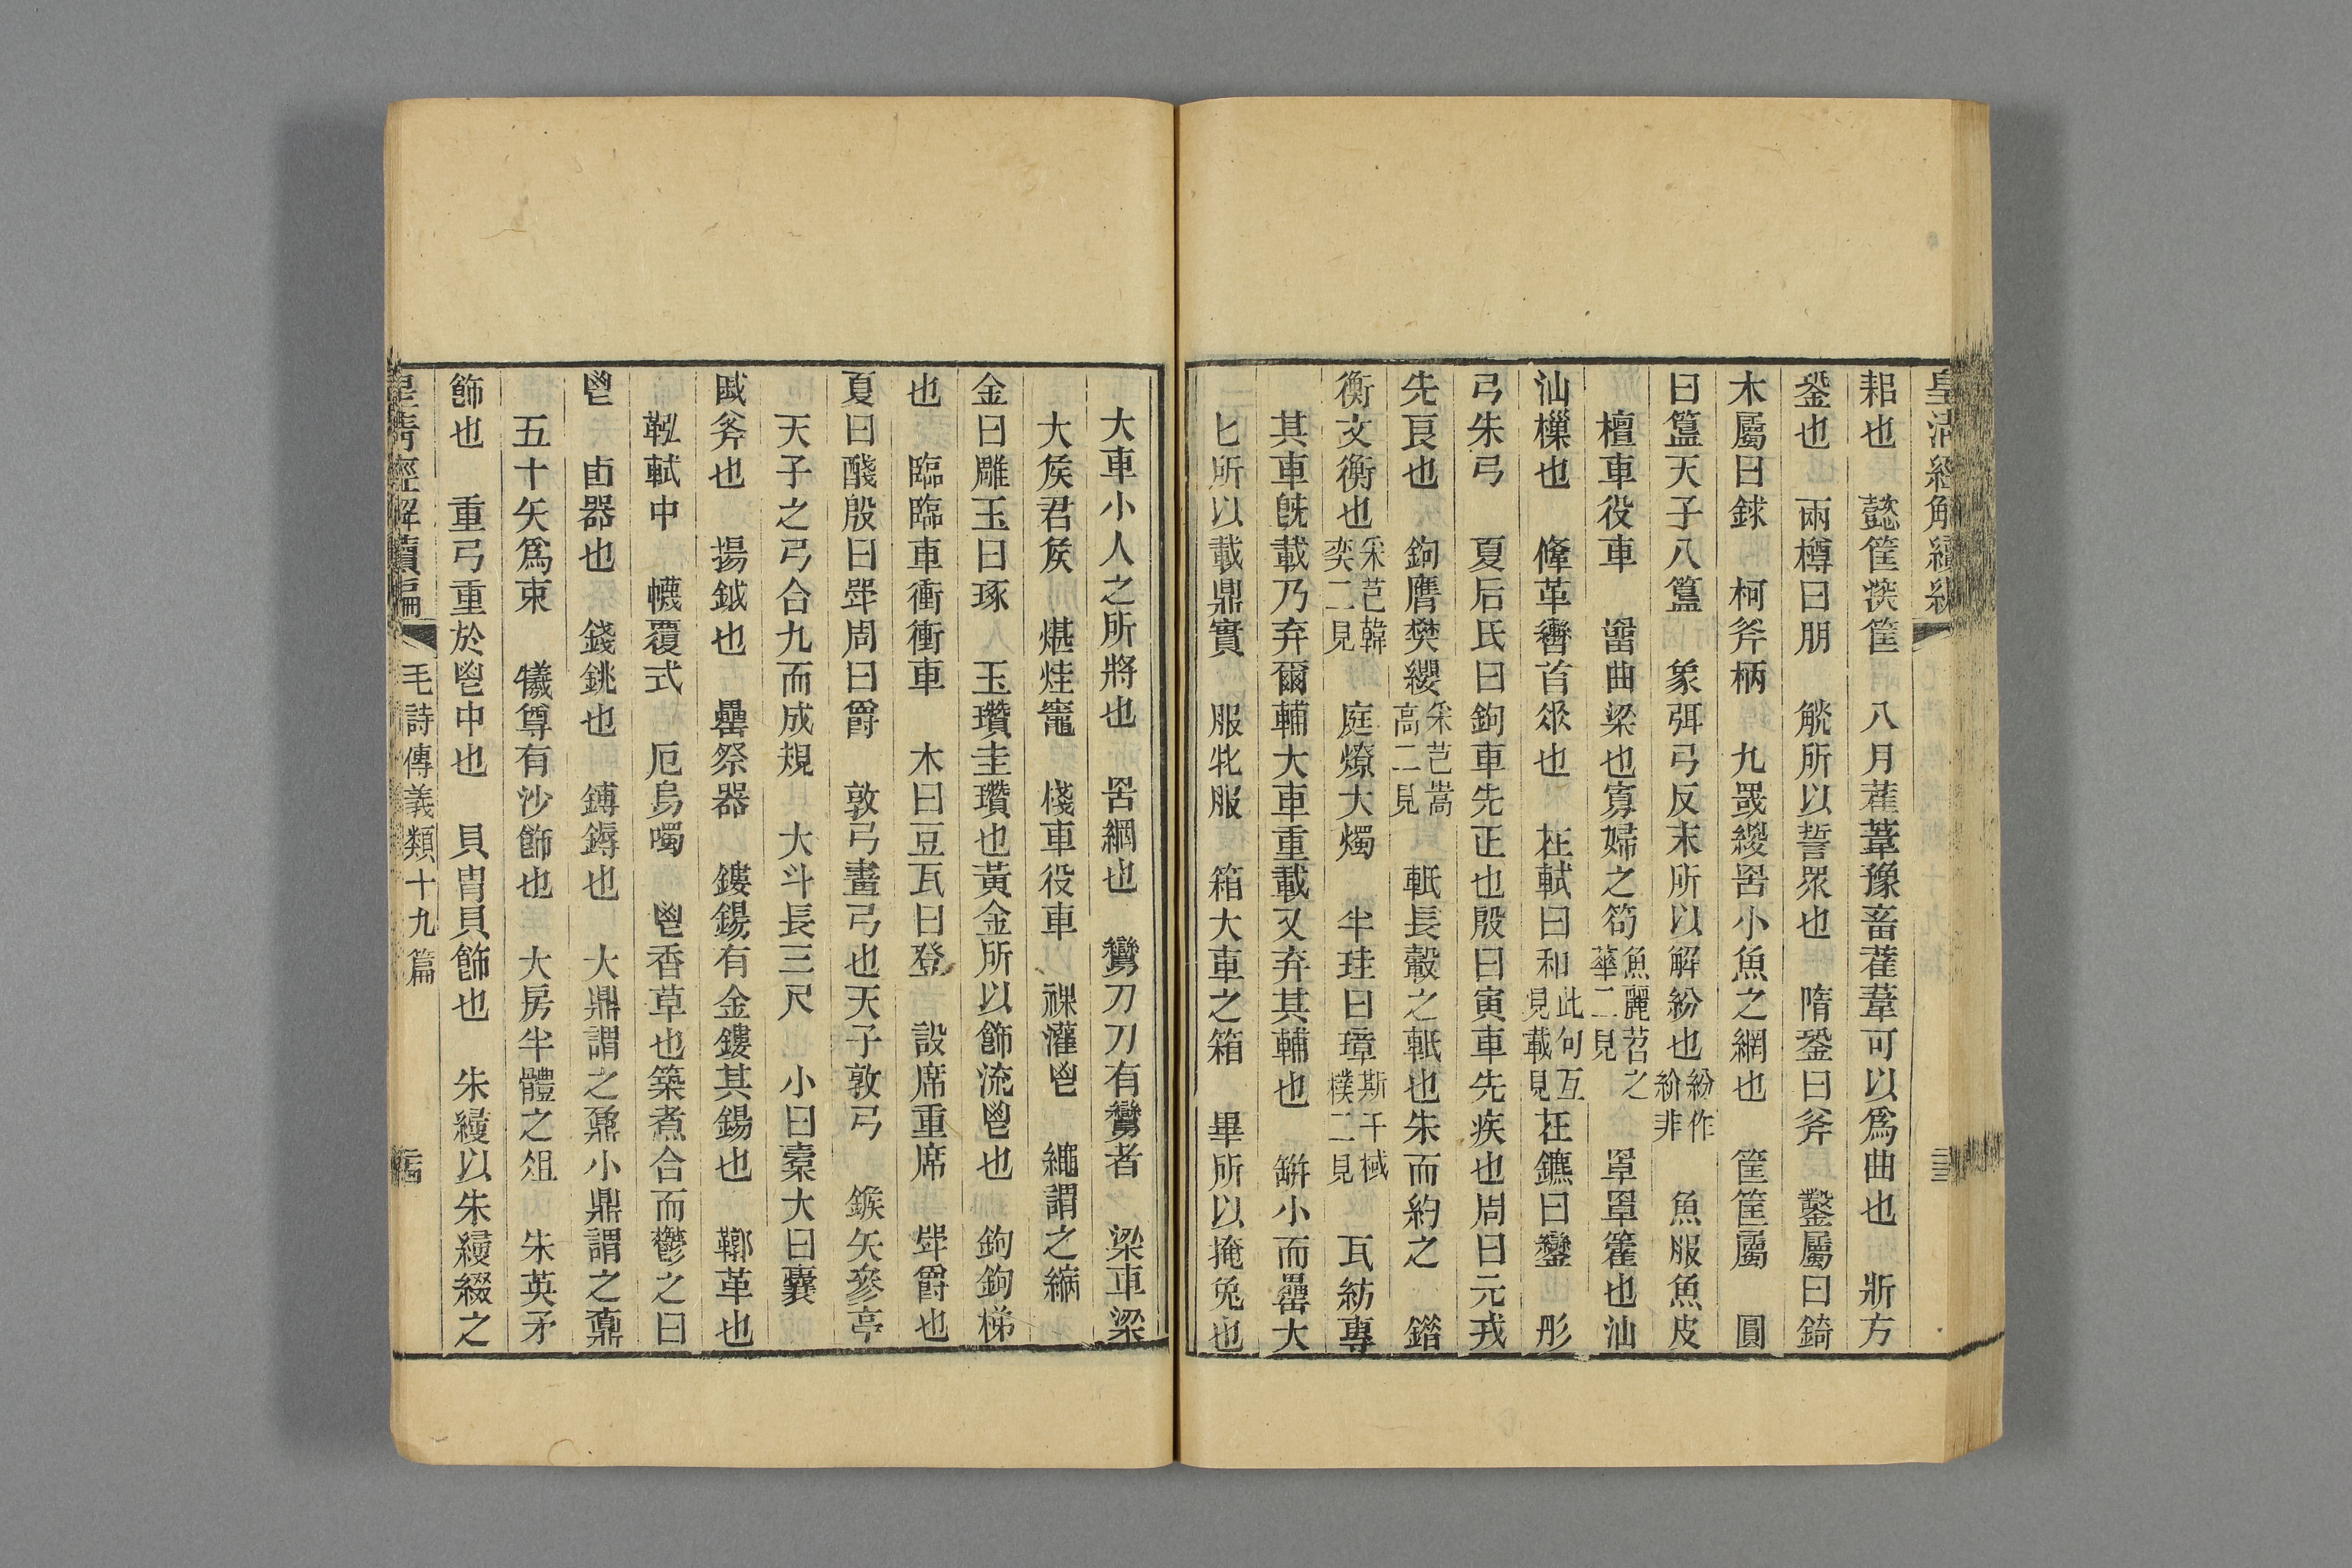 皇清經解續編
耜也　懿筐深筐　八月萑葦豫畜萑葦可以爲曲也　斨方
銎也　兩樽曰朋　觥所以誓眾也　隋銎曰斧　鑿屬曰錡
木屬曰銶　柯斧柄　九罭緵罟小魚之網也　筐筐屬　圓
曰簋天子八簋　象弭弓反末所以解紛也紛作紒非　魚服魚皮
檀車役車　罶曲梁也寡婦之笱魚麗苕之華二見　罩罩籗也汕
汕樔也　鞗革轡首飾也　在軾曰和此句互見載見在鑣曰鑾　彤
弓朱弓　夏后氏曰鉤車先正也殷曰寅車先疾也周曰元戎
先良也　鉤膺樊纓采芑崧高二見　軝長轂之軝也朱而約之　錯
衡文衡也采芑韓奕二見　庭燎大燭　半珪曰璋斯干棫樸二見　瓦紡專
其車旣載乃弃爾輔大車重載又弃其輔也　缾小而罍大
匕所以載鼎實　服牝服　箱大車之箱　畢所以掩兔也
大車小人之所將也　罟網也　鸞刀刀有鸞者　梁車梁
大矦君矦　煁烓竈　棧車役車　祼灌鬯　繩謂之縮
金曰雕玉曰琢　玉瓚圭瓚也黃金所以飾流鬯也　鉤鉤梯
也　臨臨車衝衝車　木曰豆瓦曰登　設席重席　斝爵也
夏曰醆殷曰斝周曰爵　敦弓畫弓也天子敦弓　鍭矢參亭
天子之弓合九而成規　大斗長三尺　小曰橐大曰囊
戚斧也　揚鉞也　罍祭器　鏤鍚有金鏤其鍚也　鞹革也
鞃軾中　幭覆式　厄烏噣　鬯香草也築煮合而鬱之曰
鬯　卣器也　錢銚也　鎛鎒也　大鼎謂之鼐小鼎謂之鼒
五十矢爲束　犧尊有沙飾也　大房半體之俎　朱英矛
飾也　重弓重於鬯中也　貝胄貝飾也　朱綅以朱綅綴之
皇清經解續編　毛詩傳義類十九篇